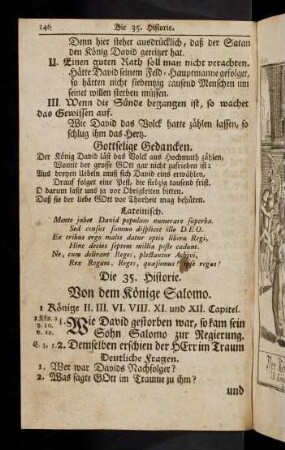 146 Die 35. Historie.
Denn hier stehet ausdrücklich, daß der Satan
den König David gereitzet hat.
II. Einen guten Rath soll man nicht verachten.
Hätte David seinem Feld-Hauptmanne gefolget,
so hätten nicht siebentzig tausend Menschen um
seinet willen sterben müssen.
III. Wenn die Sünde begangen ist, so wachet
das Gewissen auf.
Wie David das Volck hatte zählen lassen, so
schlug ihm das Hertz.
Gottselige Gedancken.
Der König David läst das Volck aus Hochmuth zählen,
Womit der große GOtt gar nicht zufrieden ist:
Aus dreyen Uebeln muß sich David eins erwählen,
Drauf folget eine Pest, die siebzig tausend frist.
O darum last uns ja vor Obrigkeiten bitten,
Daß sie der liebe GOtt vor Thorheit mag behüten.
Lateinisch.
Mente jubet David populum numerare superba.
Sed census summo displicet ille DEO.
Ex tribus ergo malis datur optio libera Regi,
Hinc decies septem millia peste cadunt.
Ne, cum delirant Reges, plectantur Achivi,
Rex Regum, Reges, quæsumus! ipse regas!
Die 35. Historie.
Von dem Könige Salomo.
1 Könige II. III. VI. VIII. XI. und XII. Capitel.
1. Wie David gestorben war, so kam sein
Sohn Salomo zur Regierung.
C. 3, 5. 2. Demselben erschien der HErr im Traum
Deutliche Fragen.
1. Wer war Davids Nachfolger?
2. Was sagte GOtt im Traume zu ihm?
und